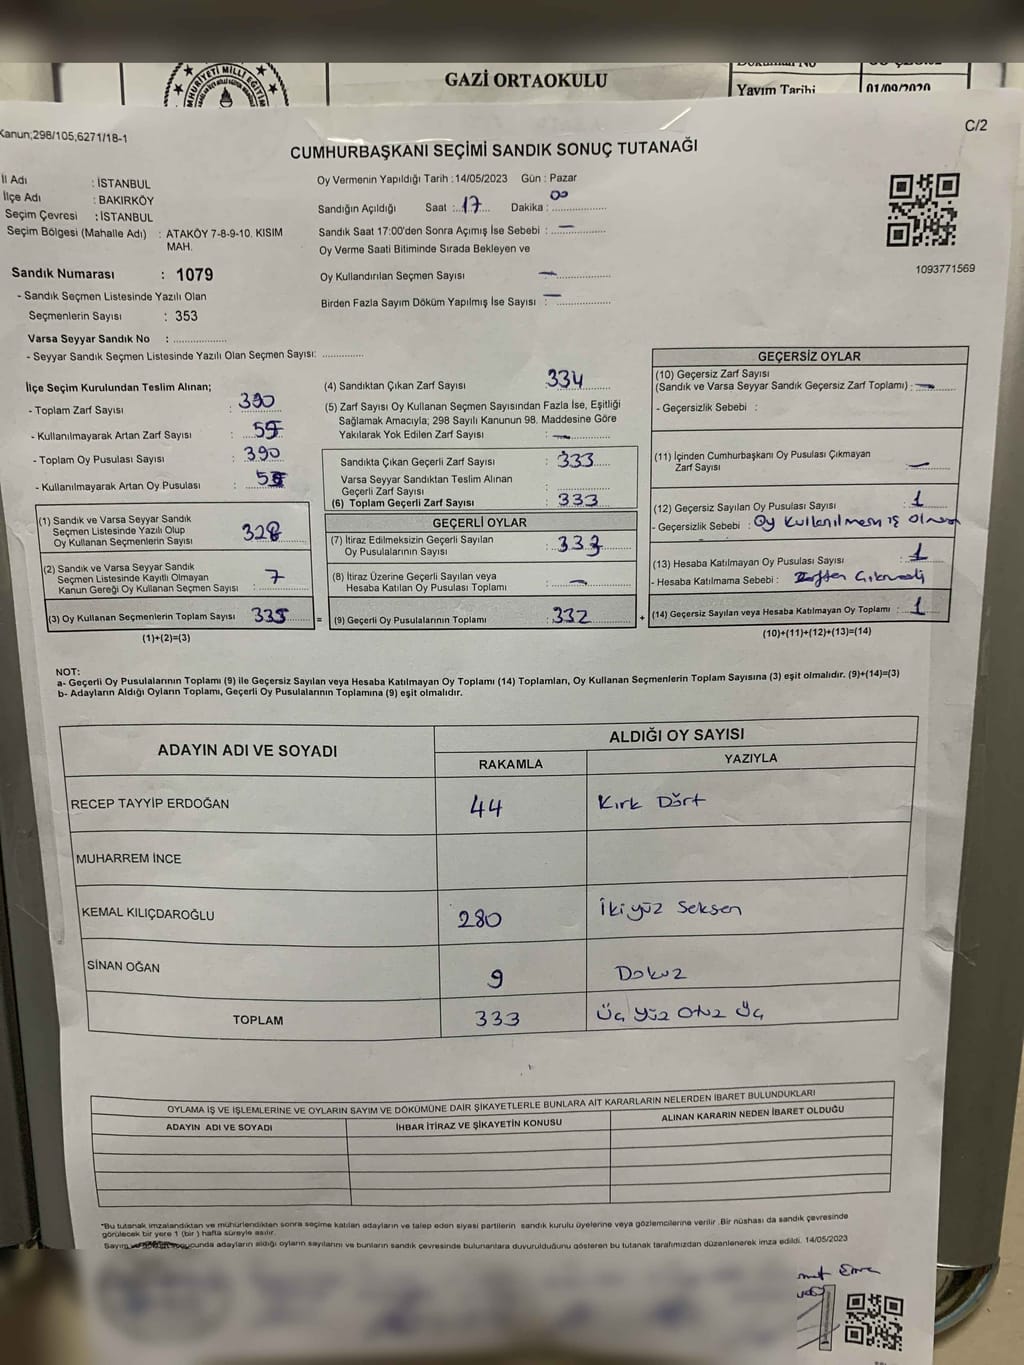 GAZİ ORTAOKULU
Yayım Tarihi 01/09/2020
Kanun;298/105,6271/18-1
C/2
CUMHURBAŞKANI SEÇİMİ SANDIK SONUÇ TUTANAĞI
İl Adı : İSTANBUL
İlçe Adı : BAKIRKÖY
Seçim Çevresi : İSTANBUL
Seçim Bölgesi (Mahalle Adı) : ATAKÖY 7-8-9-10. KISIM MAH.
Sandık Numarası : 1079
- Sandık Seçmen Listesinde Yazılı Olan
Seçmenlerin Sayısı : 353
Varsa Seyyar Sandık No : ..................
- Seyyar Sandık Seçmen Listesinde Yazılı Olan Seçmen Sayısı: .............
Oy Vermenin Yapıldığı Tarih : 14/05/2023 Gün : Pazar
Sandığın Açıldığı Saat : 17 Dakika : 00
Sandık Saat 17:00'den Sonra Açımış İse Sebebi : —
Oy Verme Saati Bitiminde Sırada Bekleyen ve
Oy Kullandırılan Seçmen Sayısı —
Birden Fazla Sayım Döküm Yapılmış İse Sayısı : —
1093771569
İlçe Seçim Kurulundan Teslim Alınan;
- Toplam Zarf Sayısı : 390
- Kullanılmayarak Artan Zarf Sayısı :
- Toplam Oy Pusulası Sayısı : 390
- Kullanılmayarak Artan Oy Pusulası :
(1) Sandık ve Varsa Seyyar Sandık
Seçmen Listesinde Yazılı Olup
Oy Kullanan Seçmenlerin Sayısı 328
(2) Sandık ve Varsa Seyyar Sandık
Seçmen Listesinde Kayıtlı Olmayan
Kanun Gereği Oy Kullanan Seçmen Sayısı : 7
(3) Oy Kullanan Seçmenlerin Toplam Sayısı 335 =
(1)+(2)=(3)
(4) Sandıktan Çıkan Zarf Sayısı 334
(5) Zarf Sayısı Oy Kullanan Seçmen Sayısından Fazla İse, Eşitliği
Sağlamak Amacıyla; 298 Sayılı Kanunun 98. Maddesine Göre
Yakılarak Yok Edilen Zarf Sayısı : —
Sandıkta Çıkan Geçerli Zarf Sayısı : 333
Varsa Seyyar Sandıktan Teslim Alınan
Geçerli Zarf Sayısı :
(6) Toplam Geçerli Zarf Sayısı : 333
GEÇERLİ OYLAR
(7) İtiraz Edilmeksizin Geçerli Sayılan
Oy Pusulalarının Sayısı :
(8) İtiraz Üzerine Geçerli Sayılan veya
Hesaba Katılan Oy Pusulası Toplamı : —
(9) Geçerli Oy Pusulalarının Toplamı : 332 +
GEÇERSİZ OYLAR
(10) Geçersiz Zarf Sayısı
(Sandık ve Varsa Seyyar Sandık Geçersiz Zarf Toplamı) : —
- Geçersizlik Sebebi :
(11) İçinden Cumhurbaşkanı Oy Pusulası Çıkmayan
Zarf Sayısı —
(12) Geçersiz Sayılan Oy Pusulası Sayısı : 1
- Geçersizlik Sebebi : Oy kullanılmamış olması
(13) Hesaba Katılmayan Oy Pusulası Sayısı : 1
- Hesaba Katılmama Sebebi : Zarftan Çıkmadı
(14) Geçersiz Sayılan veya Hesaba Katılmayan Oy Toplamı : 1
(10)+(11)+(12)+(13)=(14)
NOT:
a- Geçerli Oy Pusulalarının Toplamı (9) ile Geçersiz Sayılan veya Hesaba Katılmayan Oy Toplamı (14) Toplamları, Oy Kullanan Seçmenlerin Toplam Sayısına (3) eşit olmalıdır. (9)+(14)=(3)
b- Adayların Aldığı Oyların Toplamı, Geçerli Oy Pusulalarının Toplamına (9) eşit olmalıdır.
ADAYIN ADI VE SOYADI
ALDIĞI OY SAYISI
RAKAMLA YAZIYLA
RECEP TAYYİP ERDOĞAN 44 Kırk Dört
MUHARREM İNCE
KEMAL KILIÇDAROĞLU 280 İkiyüz Seksen
SİNAN OĞAN 9 Dokuz
TOPLAM 333 Üç Yüz Otuz Üç
OYLAMA İŞ VE İŞLEMLERİNE VE OYLARIN SAYIM VE DÖKÜMÜNE DAİR ŞİKAYETLERLE BUNLARA AİT KARARLARIN NELERDEN İBARET BULUNDUKLARI
ADAYIN ADI VE SOYADI İHBAR İTİRAZ VE ŞİKAYETİN KONUSU ALINAN KARARIN NEDEN İBARET OLDUĞU
*Bu tutanak imzalandıktan ve mühürlendikten sonra seçime katılan adayların ve talep eden siyasi partilerin sandık kurulu üyelerine veya gözlemcilerine verilir .Bir nüshası da sandık çevresinde
görülecek bir yere 1 (bir ) hafta süreyle asılır.
Sayım adayların aldığı oyların sayılarını ve bunların sandık çevresinde bulunanlara duyurulduğunu gösteren bu tutanak tarafımızdan düzenlenerek imza edildi. 14/05/2023